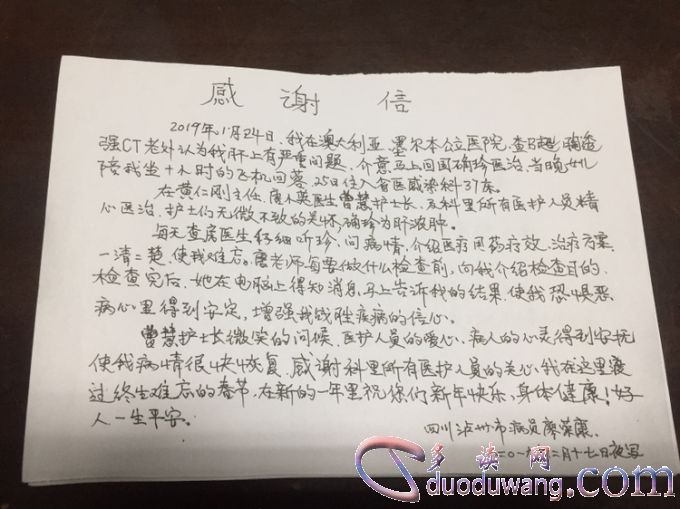 感谢信
2019年1月24日，我在澳大利亚，墨尔本公立医院，查B超、胸透
强CT老外认为我肝上有严重问题，介意马上回国确珍医治，当晚女儿
陪我坐十小时的飞机回蓉，25日住入省医感染科37床。
在黄仁刚主任、唐小英医生曾慧护士长、及科里所有医护人员精
心医治，护士们无微不致的关怀，确珍为肝浓肿。
每天查房医生仔细听珍、问病情，介绍医疗用药疗效，治疗方案
一清二楚，使我难忘。唐老师每要做什么检查前，向我介绍检查目的，
检查完后，她在电脑上得知消息，马上告诉我的结果，使我恐惧恶
病心里得到安定，增强我战胜疾病的信心。
曾慧护士长微笑的问候，医护人员的爱心，病人的心灵得到安抚
使我病情很快恢复，感谢科里所有医护人员的关心，我在这里渡
过终生难忘的春节，在新的一年里祝你们新年快乐，身体健康！好
人一生平安。
四川泸州市病员廖荣康
二〇一九年二月十七日夜写
多读网
duoduwang.com